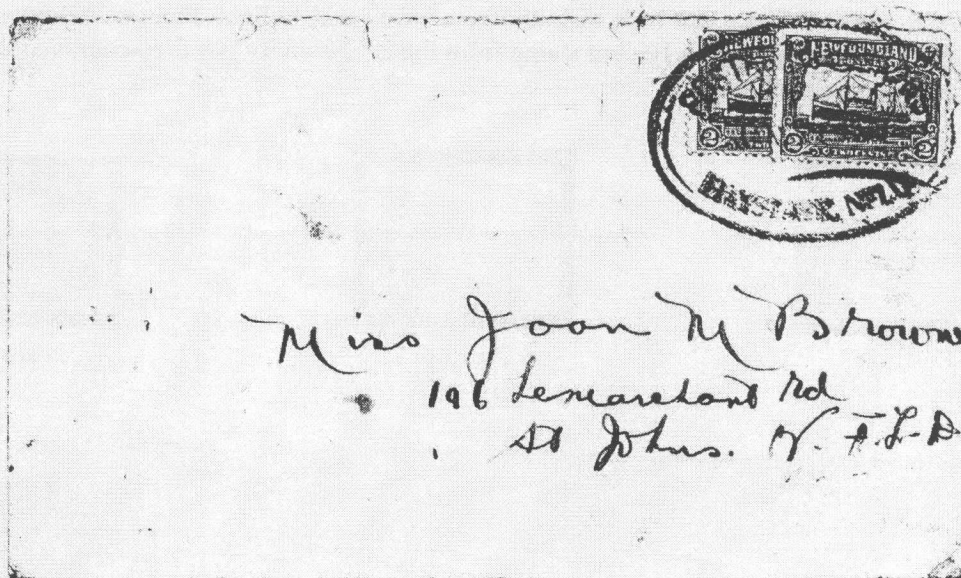 NEWFOU NEWFOUNDLAND
2 2 2
HAYSTACK, NFLD
Miss Joan M Browne
196 Lemarchant Rd
St Johns. N.F.L.D